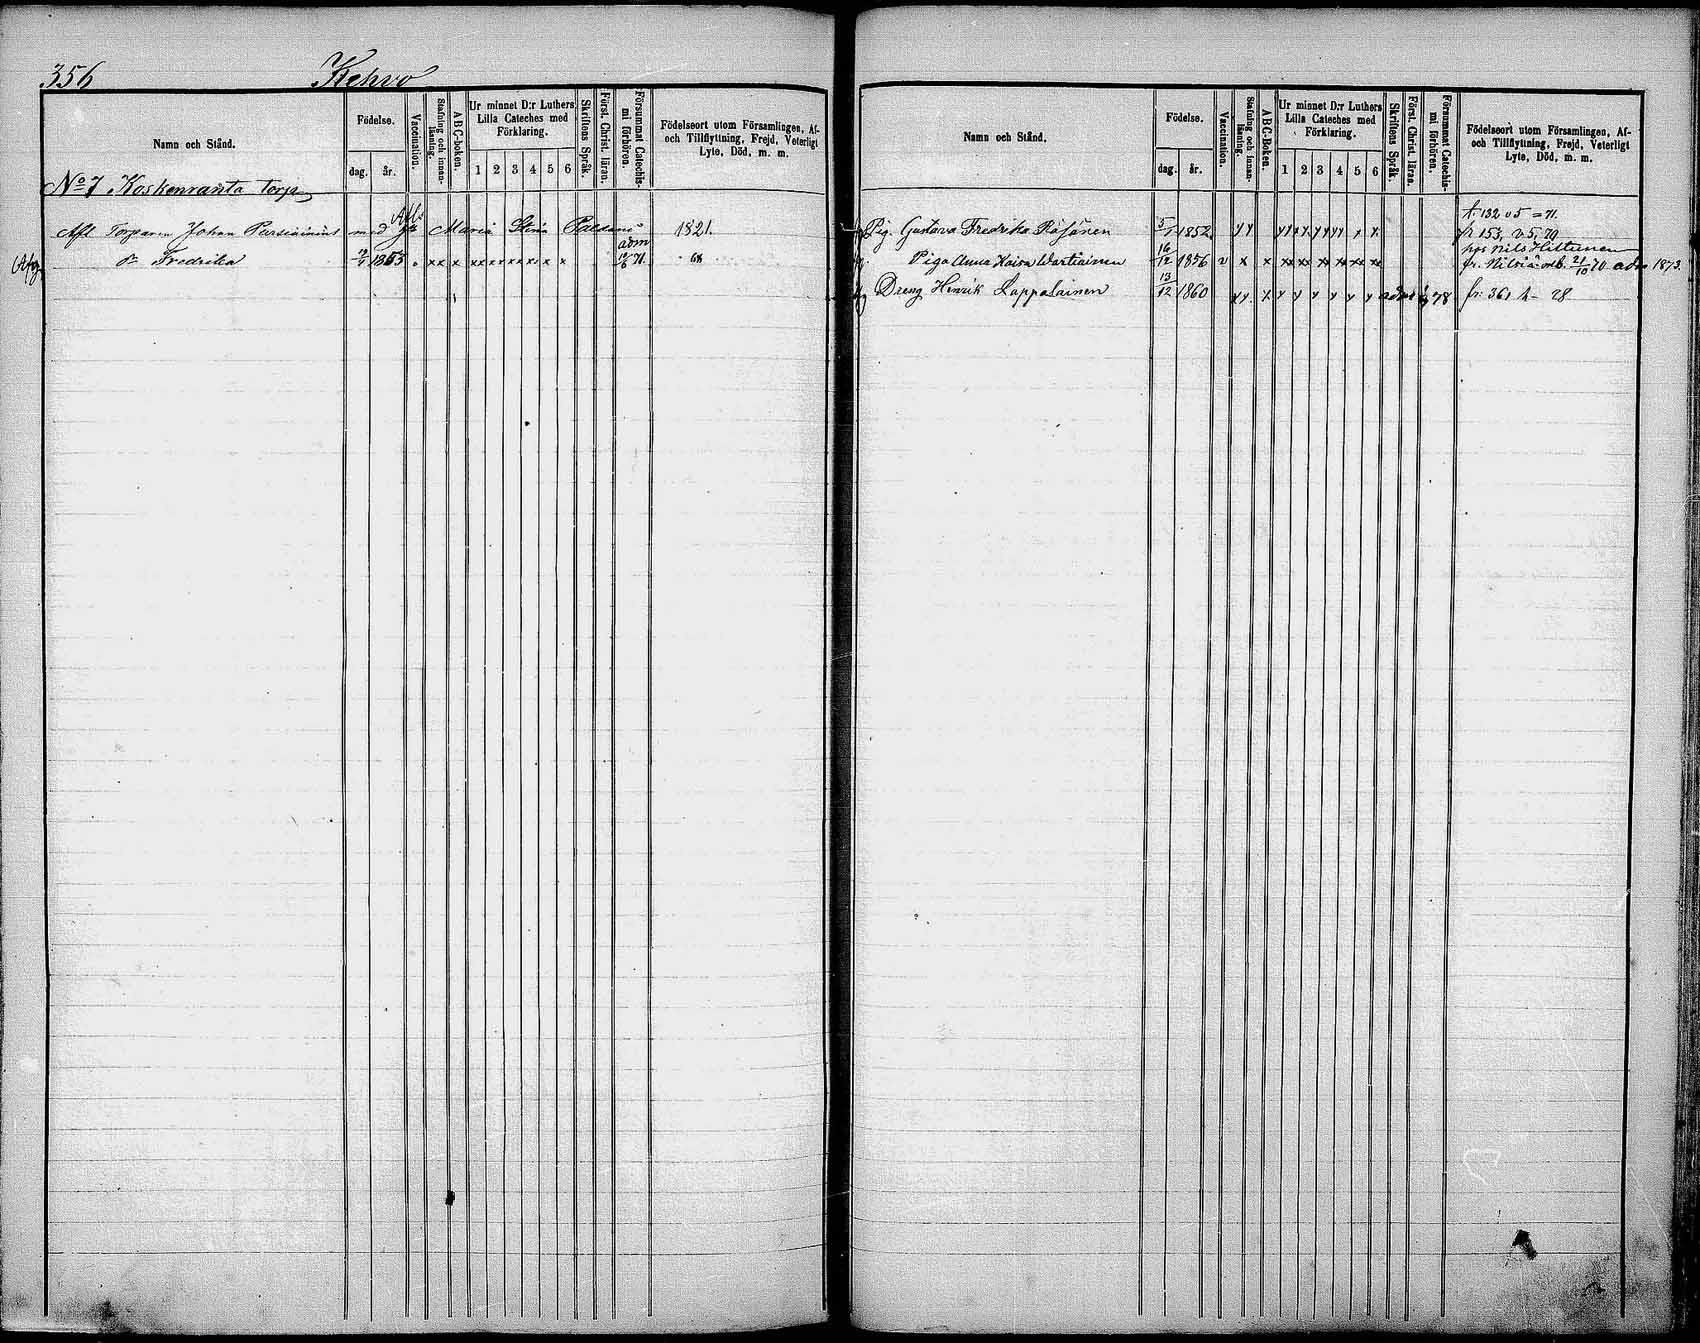 356 Kehvo
Namn och Stånd.
Födelse.
dag. år.
Vaccination.
Stafning och innan-läsning.
ABC-boken.
Ur minnet D:r Luthers
Lilla Cateches med
Förklaring.
1 2 3 4 5 6
Skriftens Språk.
Först. Christ. läran.
Försummat Catechis-
mi förhören.
Födelseort utom Församlingen, Af-
och Tillflyttning, Frejd, Veterligt
Lyte, Död, m. m.
No 7 Koskenranta torp
Afl. Torparen Johan Parsiainens med Maria Stina 1821.
Fredrika 1853 x x x x x x x x x x x adm 71. 68
Namn och Stånd.
Födelse.
dag. år.
Vaccination.
Stafning och innan-
läsning.
ABC-Boken.
Ur minnet D:r Luthers
Lilla Cateches med
Förklaring.
1 2 3 4 5 6
Skriftens Språk.
Först. Christ. läran.
Försummat Catechis-
mi förhören.
Födelseort utom Församlingen, Af-
och Tillflyttning, Frejd, Veterligt
Lyte, Död, m. m.
t. 132 v 5 = 71.
Pig. Gustava Fredrika Räsänen 1852 fr 153, v. 5, 70
Piga Anna Kaisa Wartiainen 16/12 1856 v x x xx xx xx xx xx xx fr. Nilsiä 21/10 70 adm 1873.
Dreng Henrik Lappalainen 13/12 1860 78 fr. 361